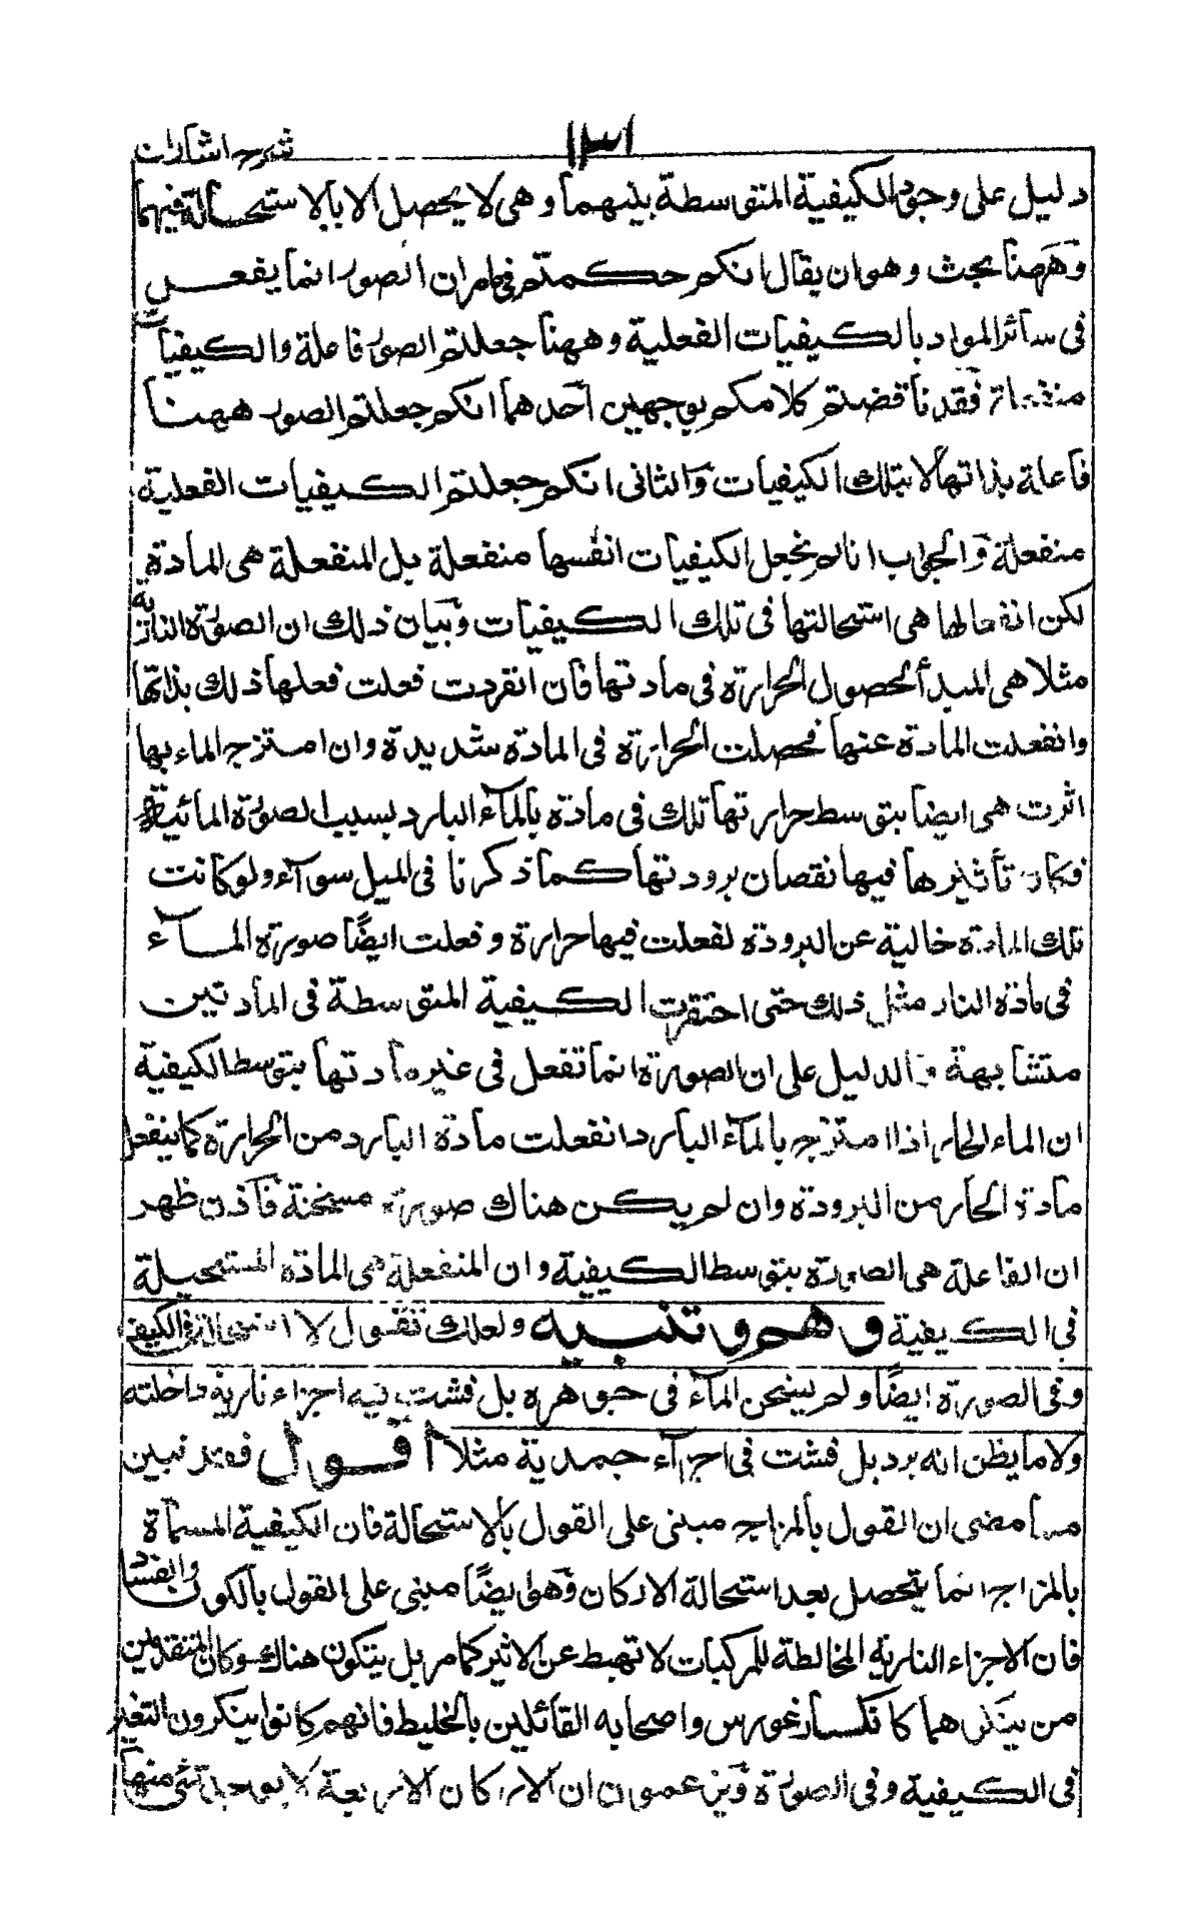 شرح اشارات
١٣١
دليل على وجود الكيفية المتوسطة بينهما وهى لا يحصل الا بالاستحالة فيهما
وههنا بحث وهو ان يقال انكم حكمتم فيما مر ان الصور انما يفعل
فى سائر المواد بالكيفيات الفعلية وههنا جعلتم الصور فاعلة والكيفيات
منفعلة فقد ناقضتم كلامكم بوجهين احدهما انكم جعلتم الصور ههنا
فاعلة بذاتها لا بتلك الكيفيات والثانى انكم جعلتم الكيفيات الفعلية
منفعلة والجواب انا لم نجعل الكيفيات انفسها منفعلة بل المنفعلة هى المادة
لكن انفعالها هى استحالتها فى تلك الكيفيات وبيان ذلك ان الصورة النارية
مثلا هى المبدأ لحصول الحرارة فى مادتها فان انفردت فعلت فعلها ذلك بذاتها
وانفعلت المادة عنها فحصلت الحرارة فى المادة شديدة وان امتزج الماء بها
اثرت هى ايضا بتوسط حرارتها تلك فى مادة بالمآء البارد بسبب الصورة المائية
فكان تأثيرها فيها نقصان برودتها كما ذكرنا فى الميل سوآء ولو كانت
تلك المادة خالية عن البرودة لفعلت فيها حرارة وفعلت ايضًا صورة المآء
فى مادة النار مثل ذلك حتى استقرت الكيفية المتوسطة فى المادتين
متشابهة والدليل على ان الصورة انما تفعل فى غير مادتها بتوسط الكيفية
ان الماء الحار اذا امتزج بالمآء البارد انفعلت مادة البارد من الحرارة كما ينفعل
مادة الحار من البرودة وان لم يكن هناك صورة مسخنة فآذن ظهر
ان الفاعلة هى الصورة بتوسط الكيفية وان المنفعلة هى المادة المستحيلة
فى الكيفية وهم وتنبيه ولعلك تقول لا استحالة فى الكيف
وفى الصورة ايضًا ولم يسخن المآء فى جوهره بل فشت فيه اجزاء نارية داخلته
ولا ما يظن انه برد بل فشت فى اجزآء جمدية مثلا أقول فقد تبين
مما مضى ان القول بالمزاج مبنى على القول بالاستحالة فان الكيفية المسماة
بالمزاج انما يتحصل بعد استحالة الاركان وهو ايضًا مبنى على القول بالكون والفساد
فان الاجزاء النارية المخالطة للمركبات لا تهبط عن الاثير كما مر بل يتكون هناك وكان المتقدمين
من ينكرهما كانكسارغورس واصحابه القائلين بالخليط فانهم كانوا ينكرون التغير
فى الكيفية وفى الصورة ويزعمون ان الاركان الاربعة لا يوجد شئ منها